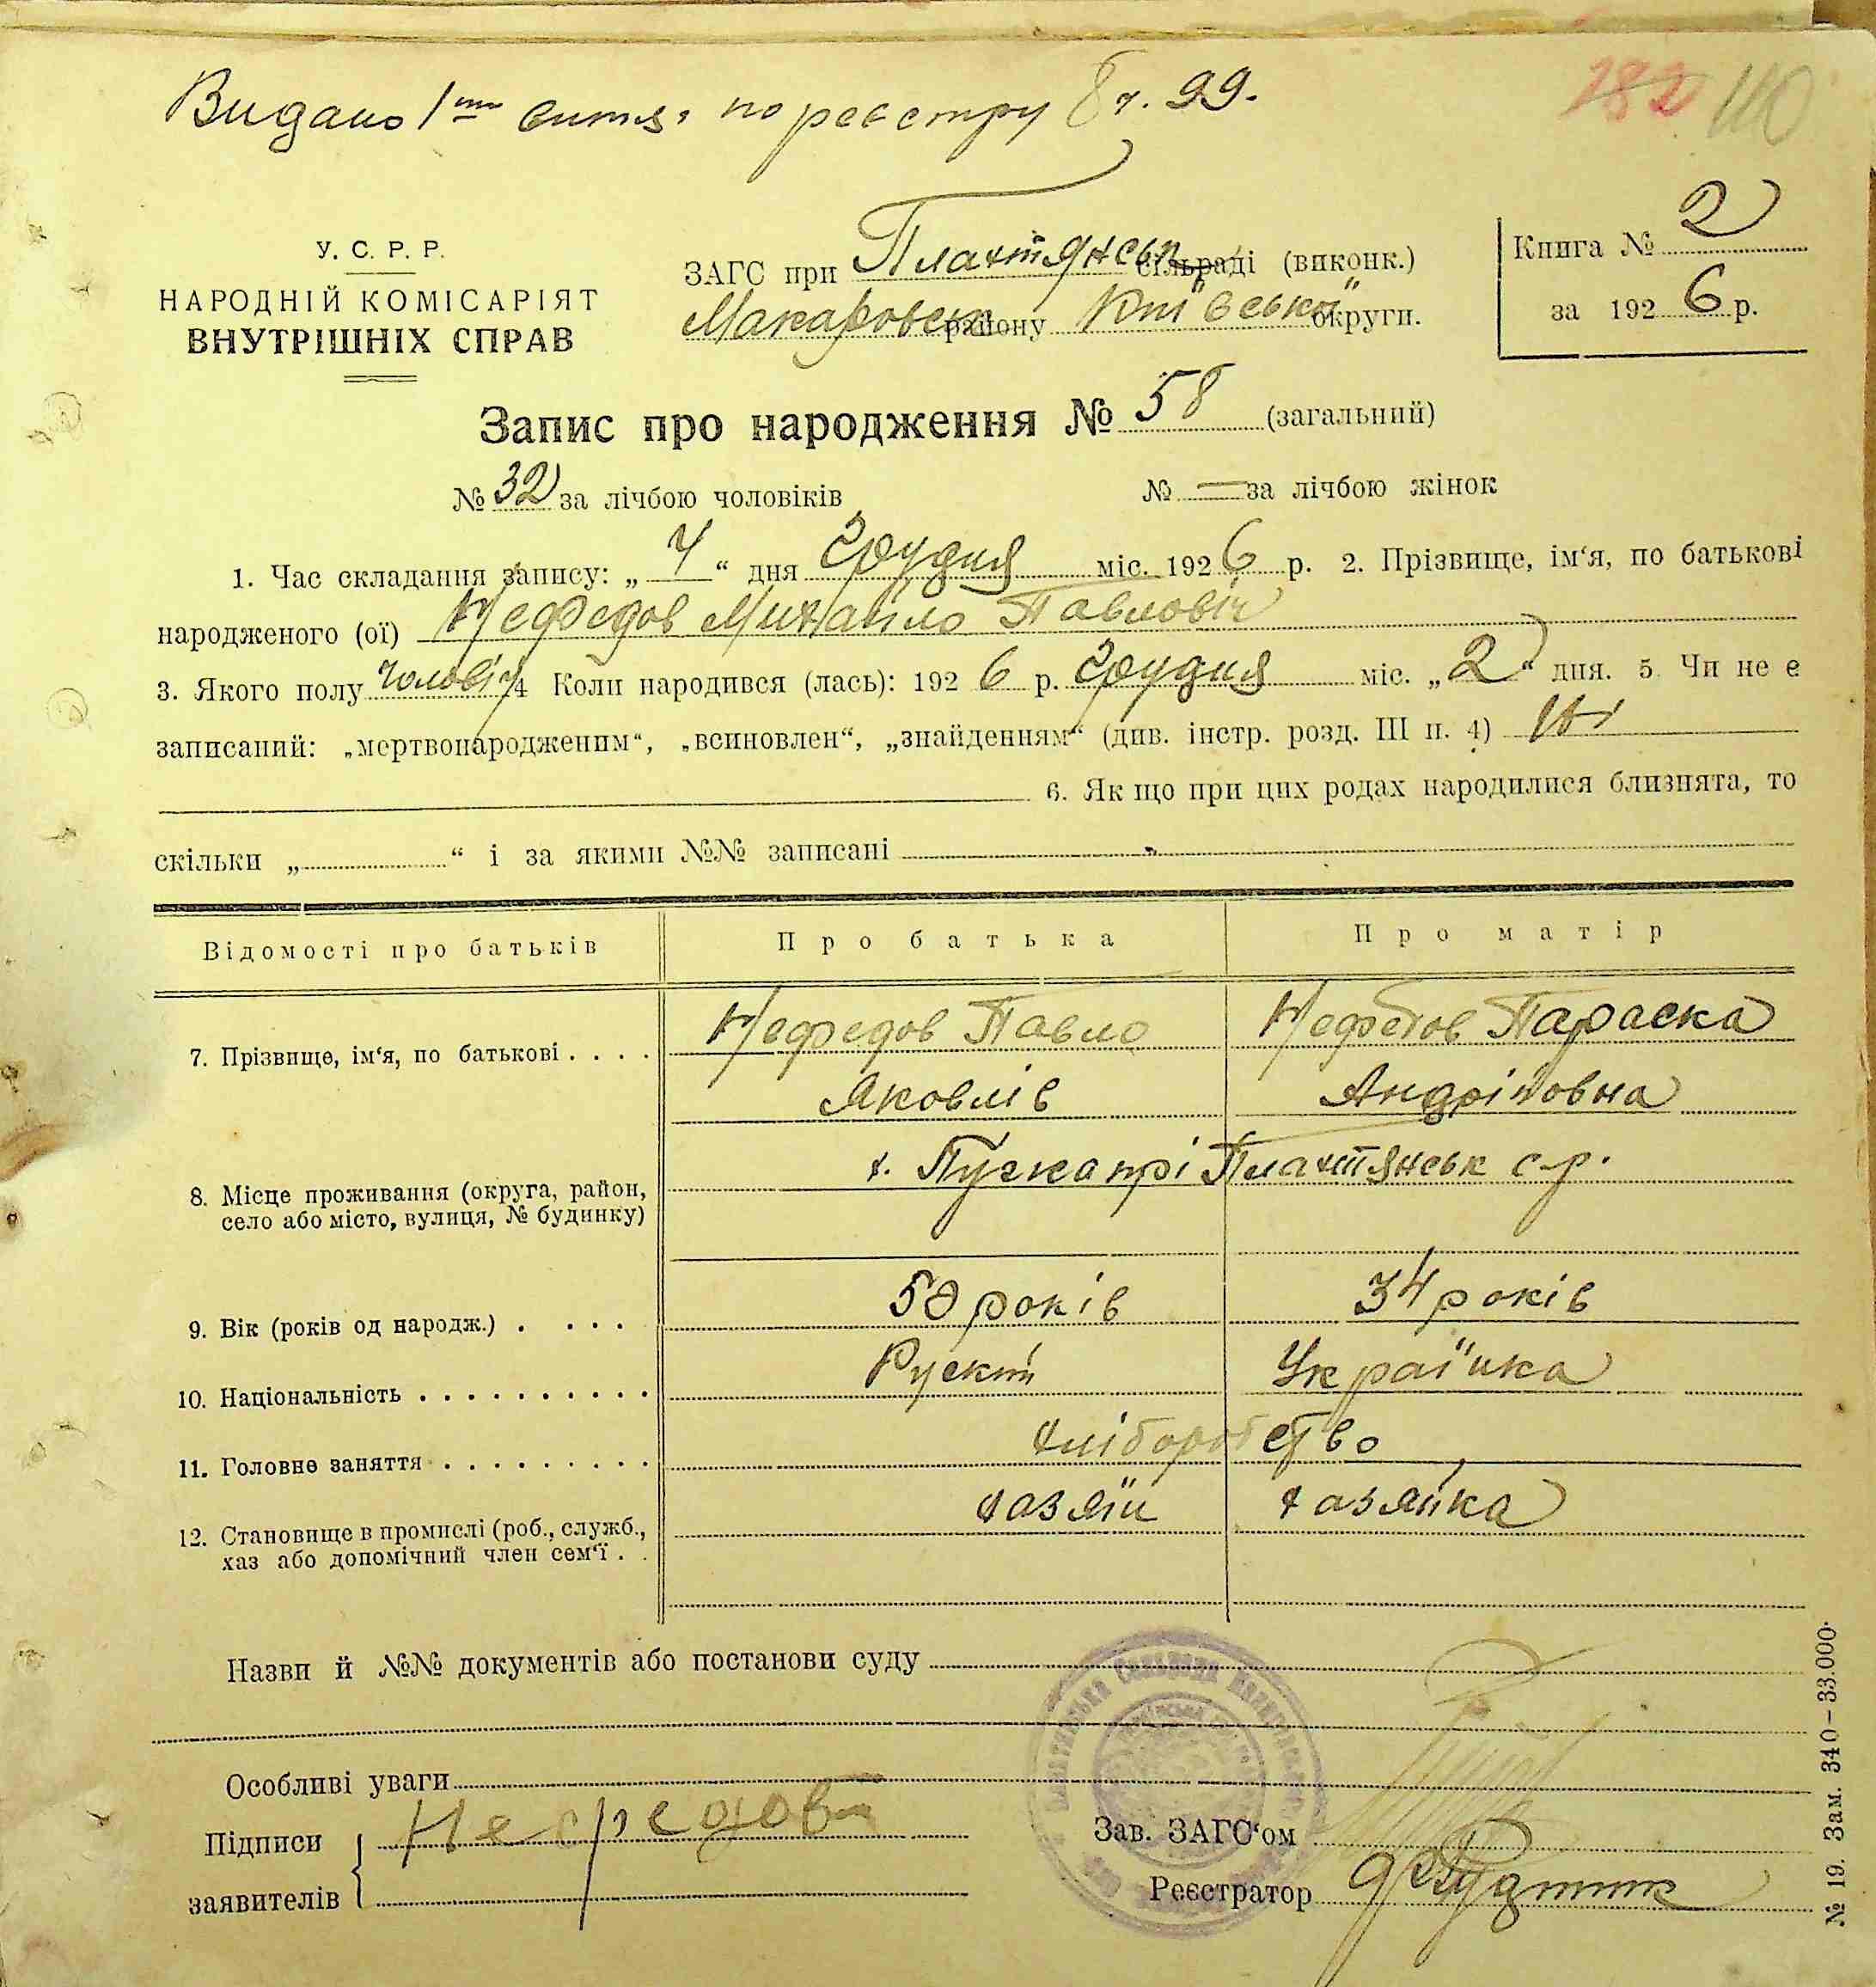 Видано 1 витяг по реєстру ч. 99.
182 110
У. С. Р. Р.
НАРОДНІЙ КОМІСАРІЯТ
ВНУТРІШНІХ СПРАВ
ЗАГС при Плахтянськ сільраді (виконк.)
Макаровськ району Київської округи.
Книга № 2
за 1926 р.
Запис про народження № 58 (загальний)
№ 32 за лічбою чоловіків
№ — за лічбою жінок
1. Час складання запису: „ 4 “ дня Грудня міс. 1926 р. 2. Прізвище, ім‘я, по батькові
народженого (ої) Нефедов Михайло Павловіч
3. Якого полу чоловіч 4 Коли народився (лась): 1926 р. Грудня міс. „ 2 “ дня. 5 Чи не є
записаний: „мертвонародженим“, „всиновлен“, „знайденням“ (див. інстр. розд. III п. 4) Ні
6. Як що при цих родах народилися близнята, то
скільки „ “ і за якими №№ записані
Відомості про батьків
Про батька
Про матір
7. Прізвище, ім‘я, по батькові . . . .
Нефедов Павло
Яковлів
Нефедов Параска
Андріївовна
8. Місце проживання (округа, район,
село або місто, вулиця, № будинку)
х. Плахтянськ с.р.
9. Вік (років од народж.) . . . .
50 років
34 років
10. Національність . . . . . . . . . .
Руский
Українка
11. Головне заняття . . . . . . . . .
хліборобство
12. Становище в промислі (роб., служб.,
хаз або допомічний член сем‘ї . .
хазяїн
хазяйка
Назви й №№ документів або постанови суду
Особливі уваги
Підписи
заявителів
Нефедов
Зав. ЗАГС‘ом
Реєстратор Рудник
№ 19. Зам. 340–33.000·